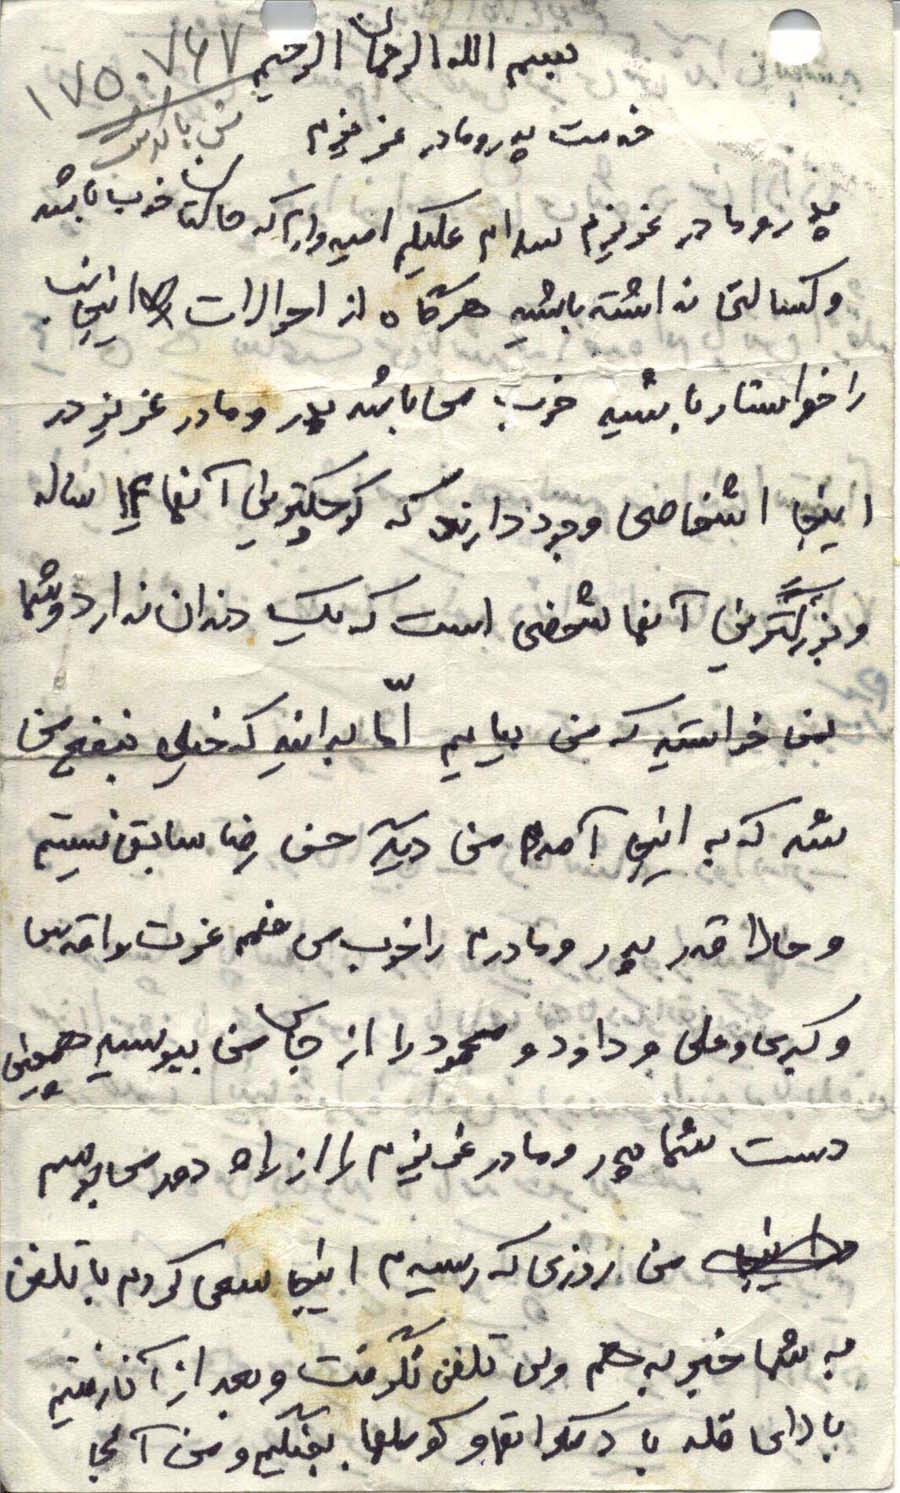 بسم الله الرحمان الرحیم
۱۷۵۰۷۶۷
خدمت پدر و مادر عزیزم
پدر و مادر عزیزم سلام علیکم امیدوارم که حالتان خوب باشد
و کسالتی نداشته باشید هرگاه از احوالات اینجانب
را خواستار باشید خوب می‌باشد پدر و مادر عزیز در
اینجا اشخاصی وجود دارند که کوچکترین آنها ۱۴ ساله
و بزرگترین آنها شخصی است که یک دندان ندارد و شما
نمی خواستید که من بیایم امّا بدانید که خیلی بنفع من
شد که به اینجا آمدم من دیگر حسن رضا سابق نیستم
و حالا قدر پدر و مادرم را خوب می فهمم عزت و اقدس
و کبری و علی و داود و محمود را از جانب من ببوسید همچنین
دست شما پدر و مادر عزیزم را از راه دور می‌بوسم
من روزی که رسیدم اینجا سعی کردم با تلفن
به شما خبر بدهم ولی تلفن نگرفت و بعد از آن رفتیم
با دمکراتها و کوملها بجنگیم و من آنجا